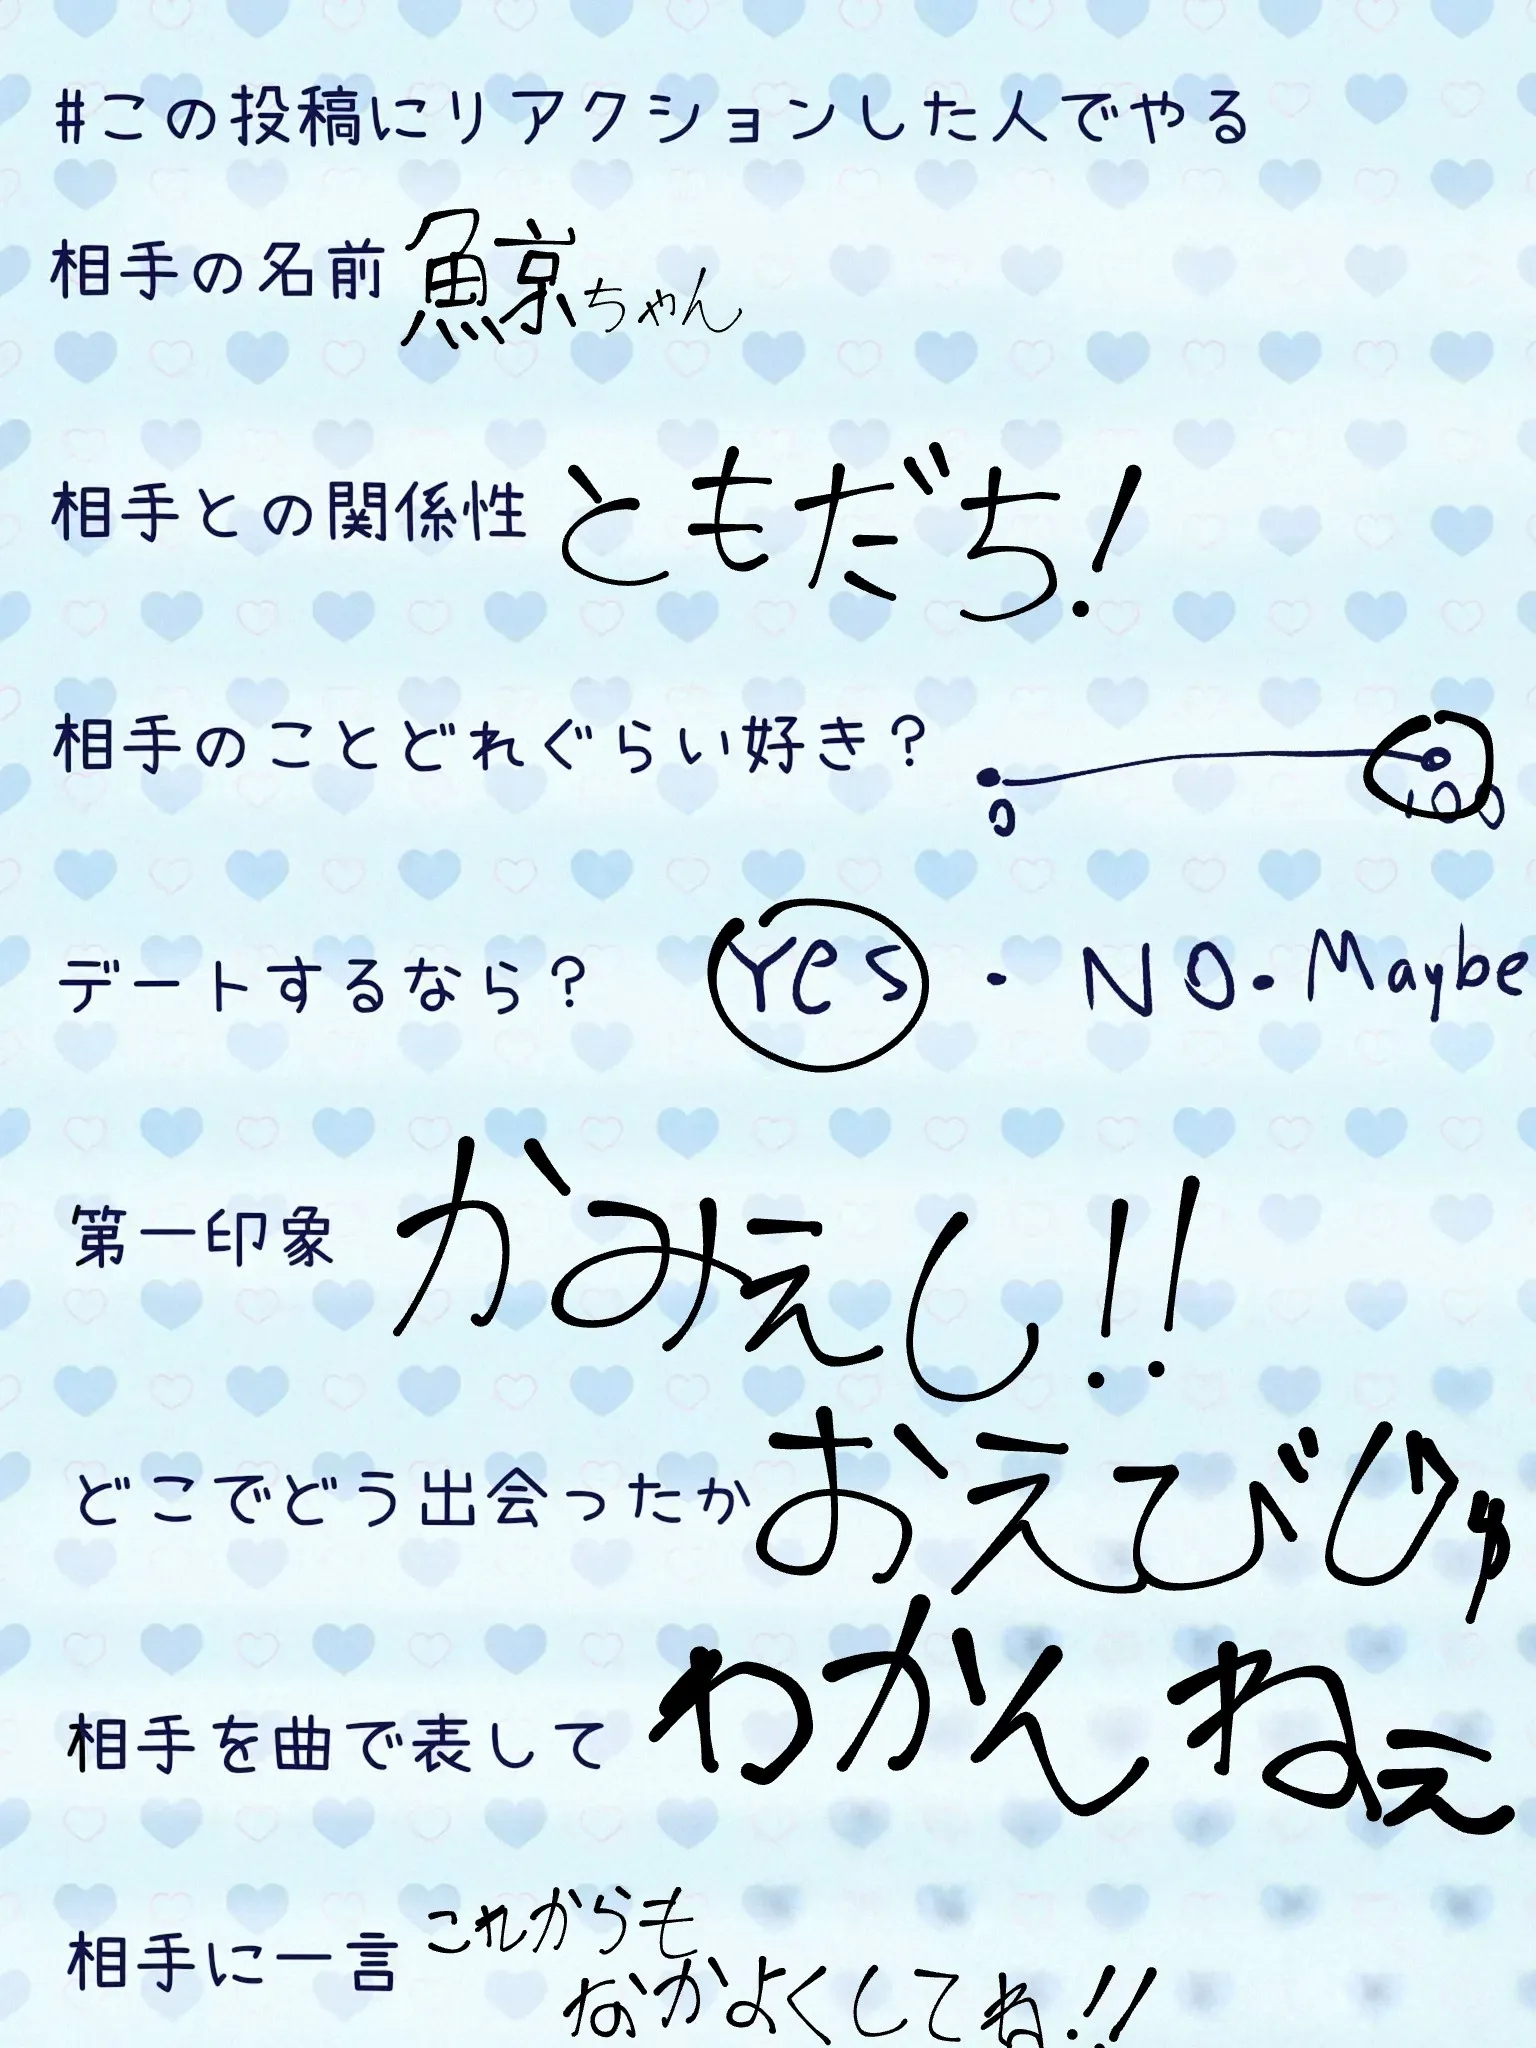 #この投稿にリアクションした人でやる
相手の名前 鯨ちゃん
相手との関係性 ともだち!
相手のことどれぐらい好き? 0 100
デートするなら? Yes・NO・Maybe
第一印象 かみえし!!
どこでどう出会ったか おえびじゅ
相手を曲で表して わかんねぇ
相手に一言 これからも
なかよくしてね!!